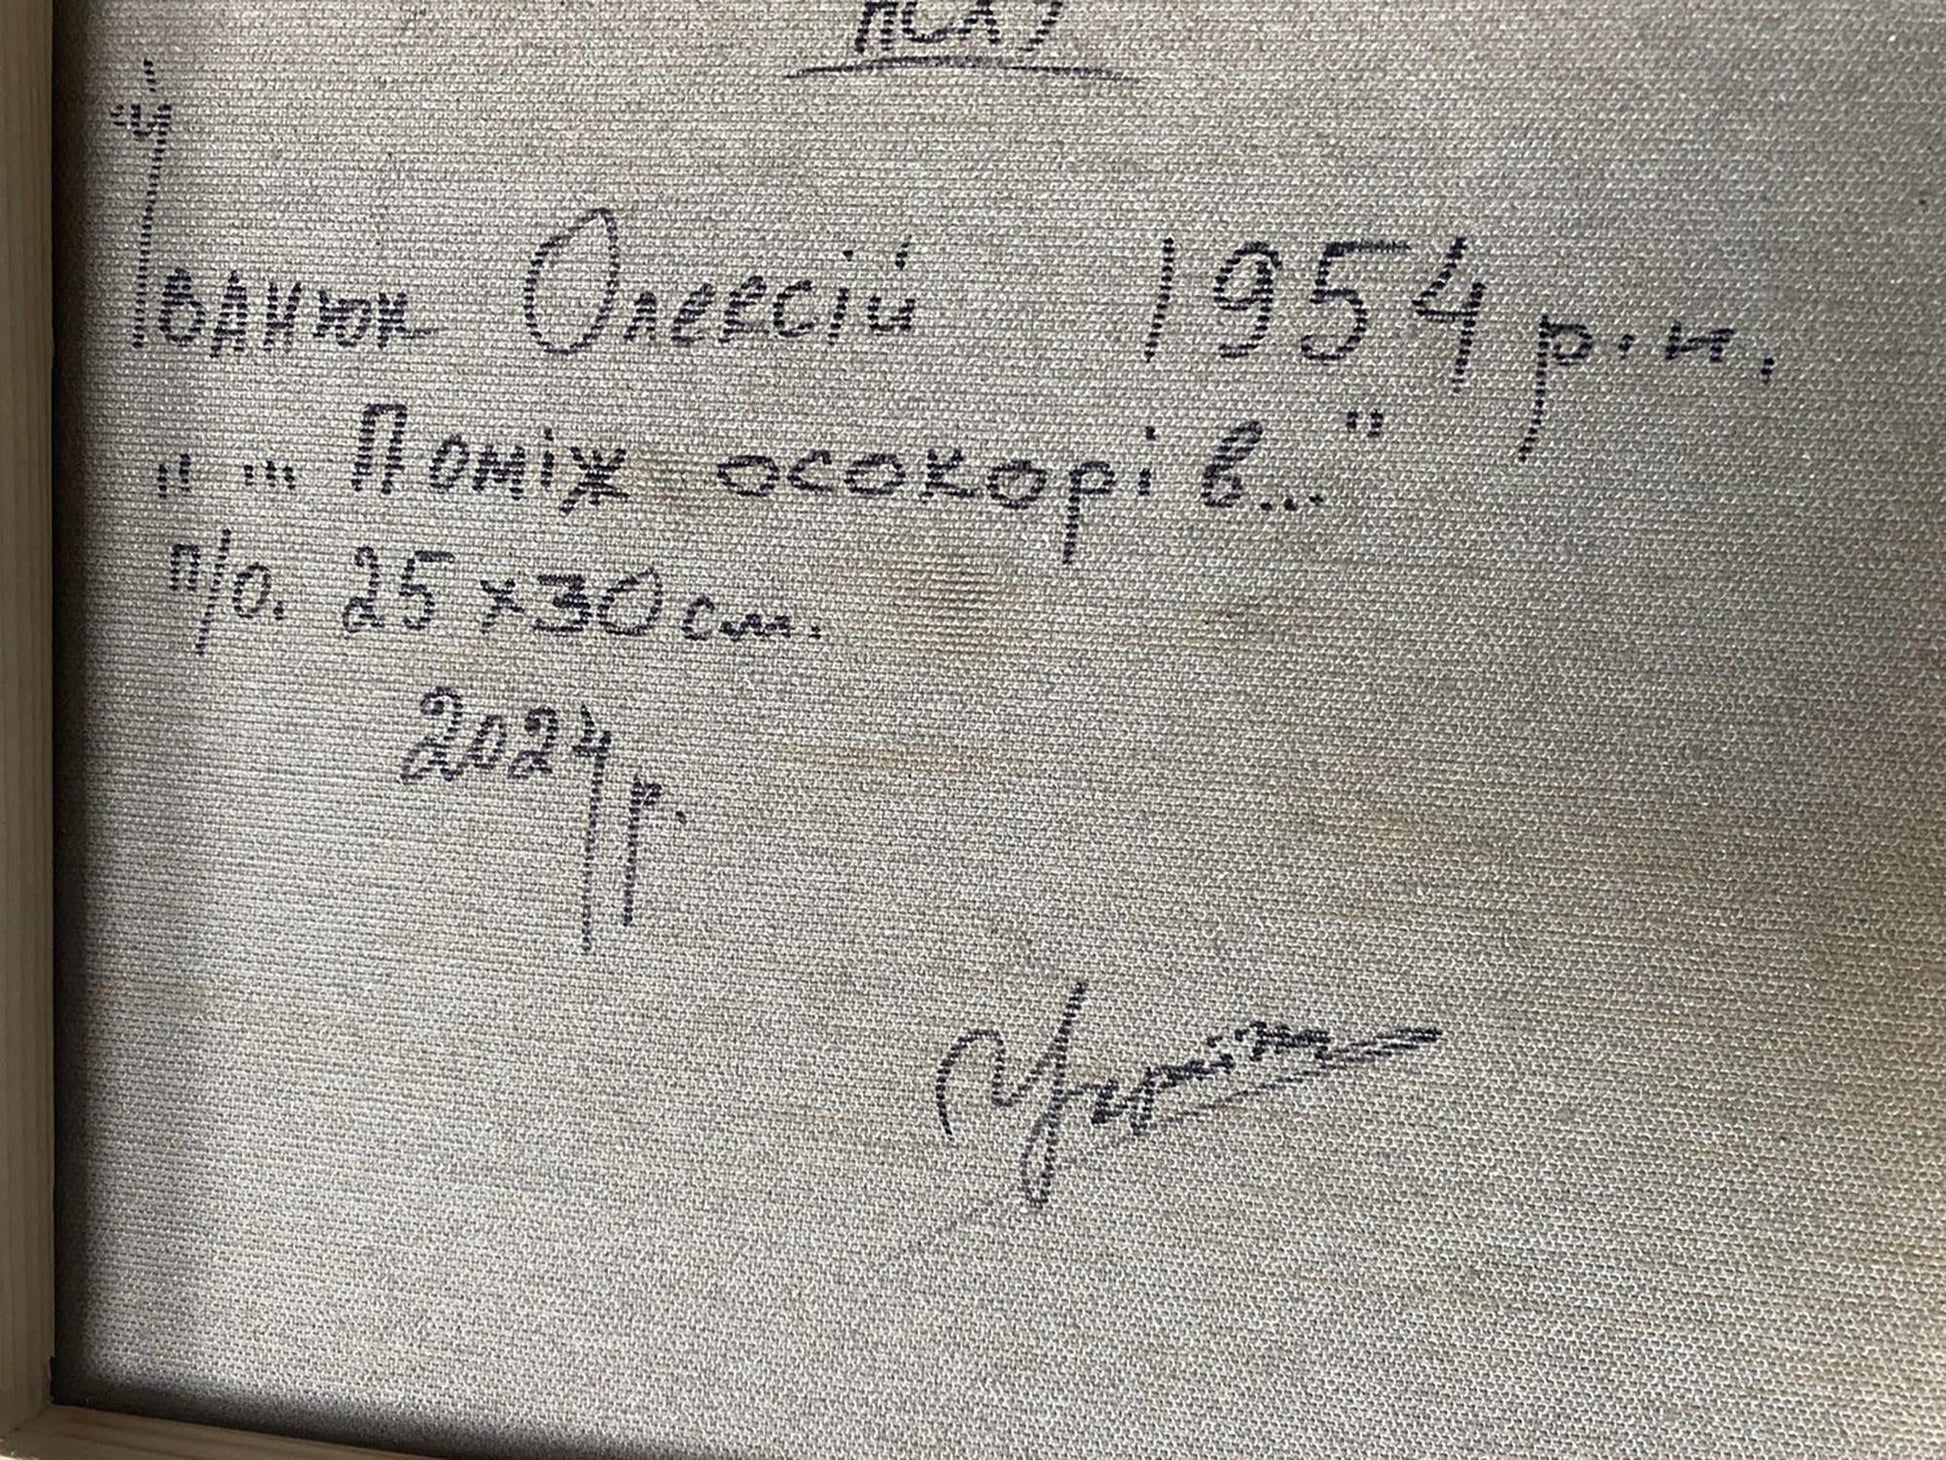 НСХУ
Іванюк Олексій 1954 р.н.
"...Поміж осокорів..."
п/о. 25х30см.
2024р.